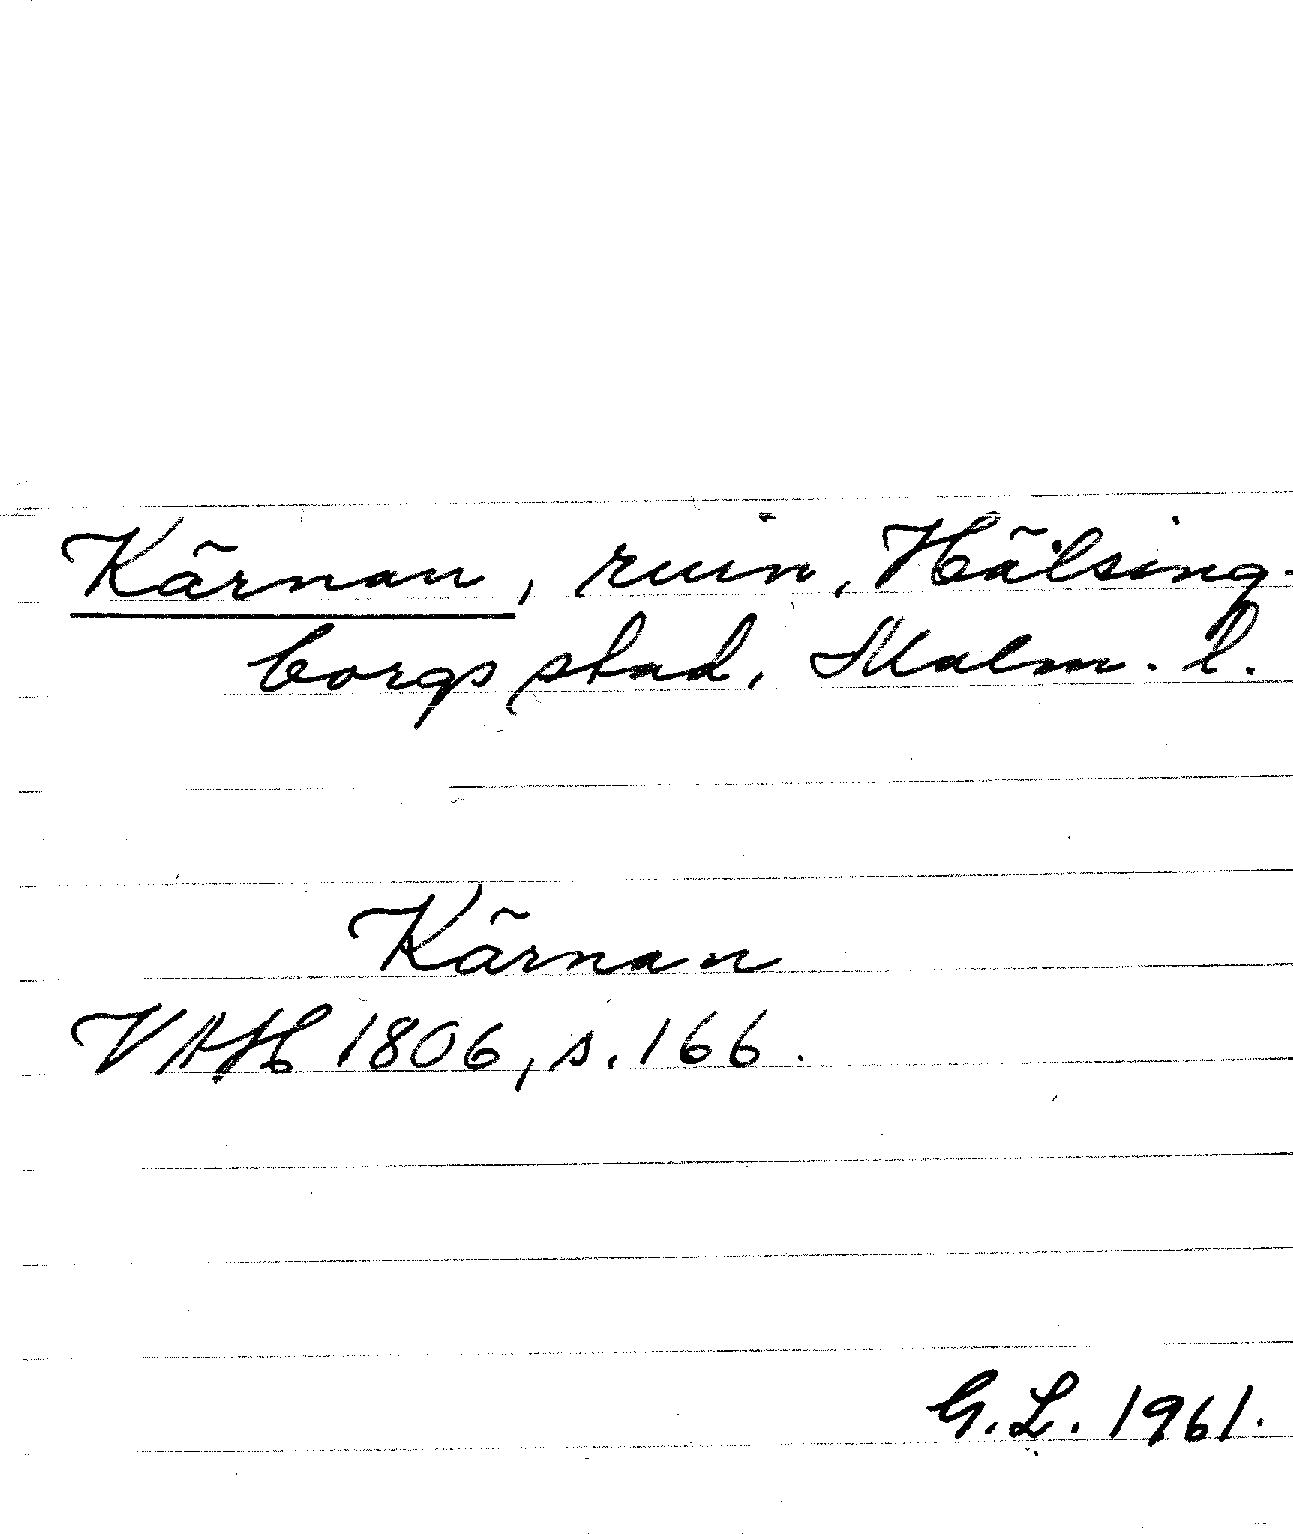 Kärnan, ruin, Hälsing-
borgs stad, Malm. l.
Kärnan
VAH 1806, s. 166.
G.L. 1961.